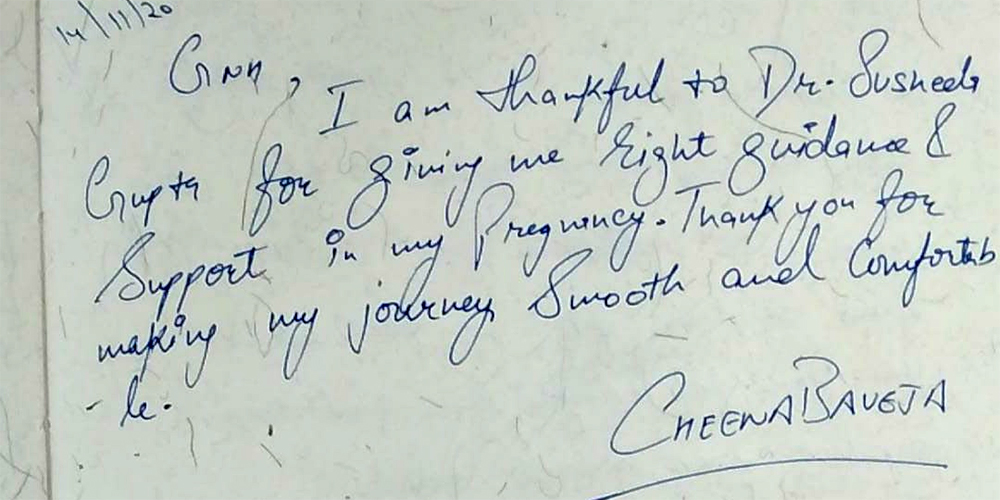 14/11/20
GNH,
I am thankful to Dr. Susheela
Gupta for giving me right guidance &
Support in my Pregnancy. Thank you for
making my journey Smooth and Comfortab
- le.
CHEENA BAVEJA